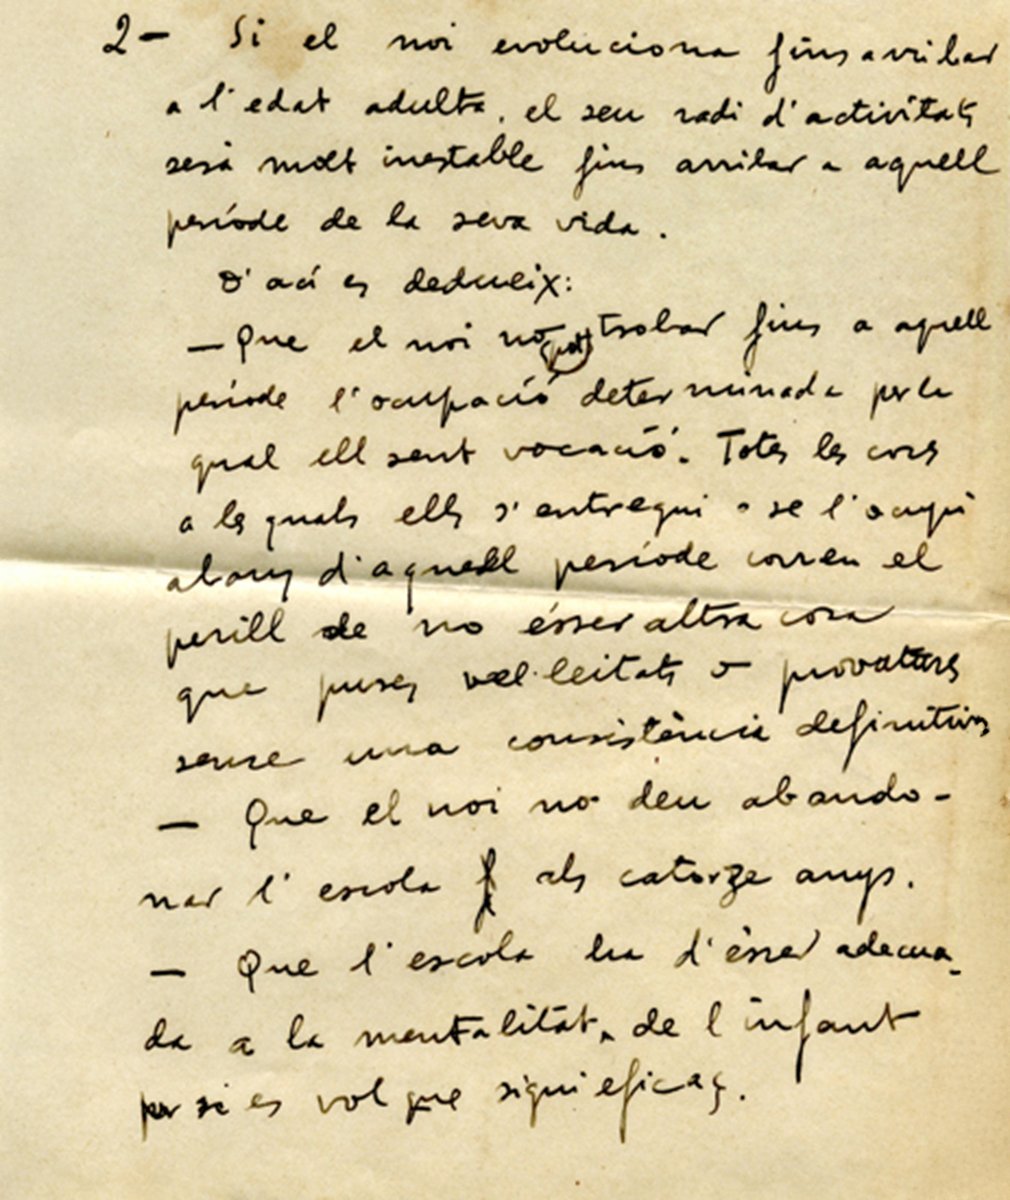 2- Si el noi evoluciona fins arribar
a l'edat adulta, el seu radi d'activitats
serà molt inestable fins arribar a aquell
període de la seva vida.
D'ací es dedueix:
- Que el noi no pot trobar fins a aquell
període l'ocupació determinada per la
qual ell sent vocació. Totes les coses
a les quals ells s'entregui o se l'ocupi
abans d'aquell període corren el
perill de no ésser altra cosa
que pures vel·leitats o provatures
sense una consistència definitiva
- Que el noi no deu abando-
nar l'escola als catorze anys.
- Que l'escola ha d'ésser adecua-
da a la mentalitat de l'infant
per si es vol que sigui eficaç.